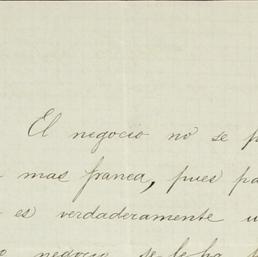 El negocio no se p
mas franca, pues pa
es verdaderamente u
negocio se le ha